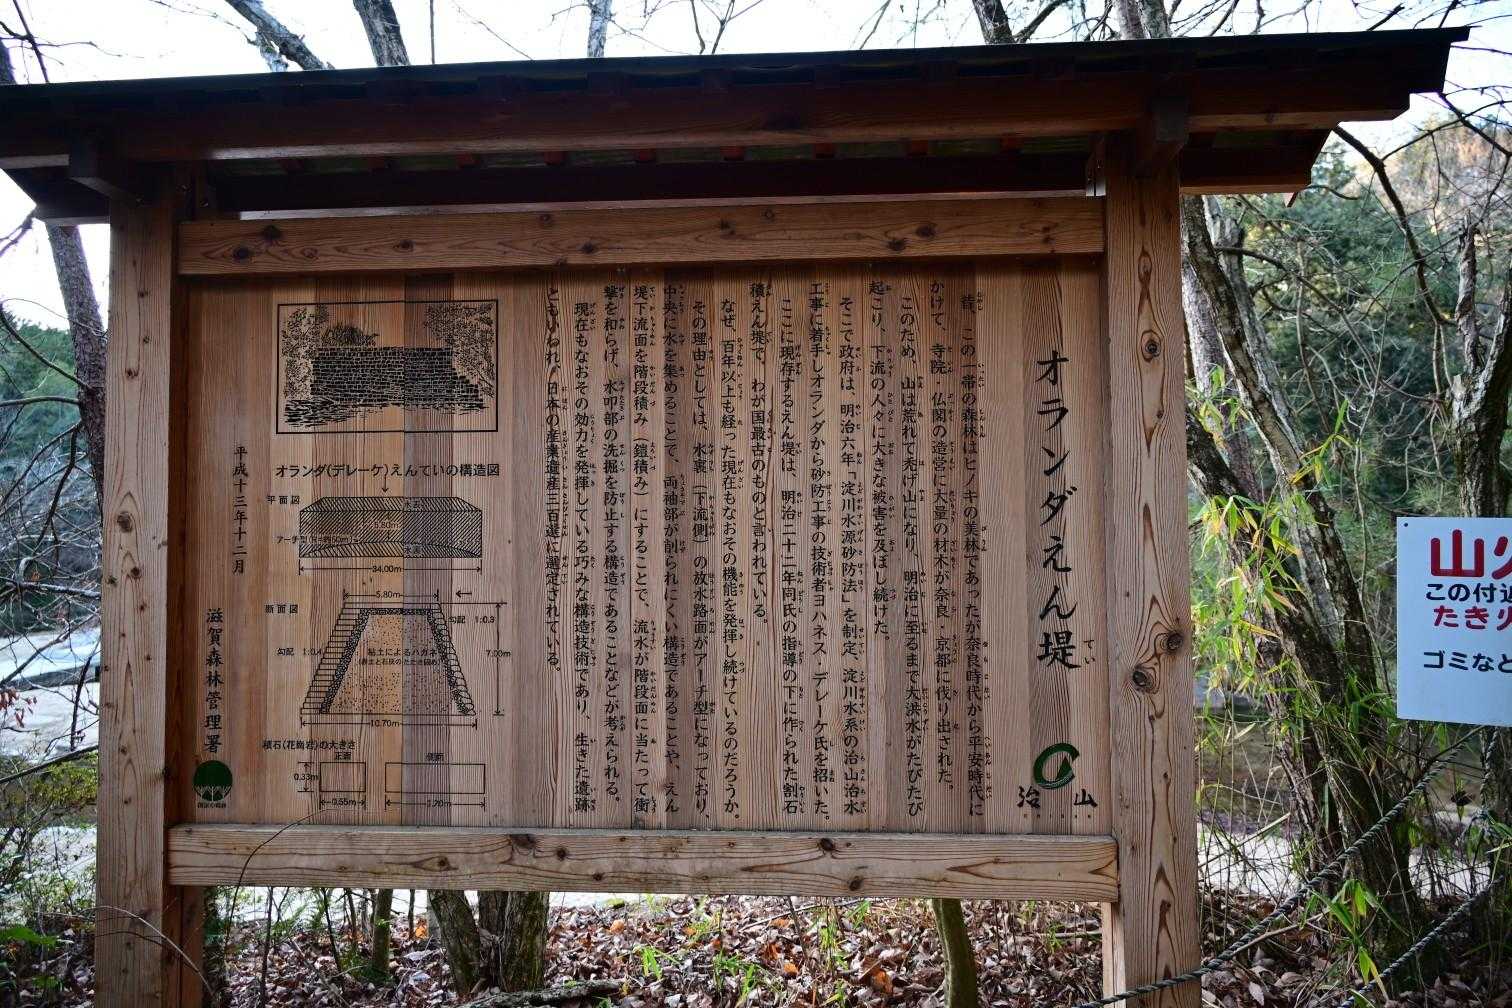 オランダえん堤
てい
治山
昔、この一帯の森林はヒノキの美林であったが奈良時代から平安時代に
かけて、寺院・仏閣の造営に大量の材木が奈良、京都に伐り出された。
このため、山は荒れて禿げ山になり、明治に至るまで大洪水がたびたび
起こり、下流の人々に大きな被害を及ぼし続けた。
そこで政府は、明治六年「淀川水源砂防法」を制定、淀川水系の治山治水
工事に着手しオランダから砂防工事の技術者ヨハネス・デレーケ氏を招いた。
ここに現存するえん堤は、明治二十二年同氏の指導の下に作られた割石
積えん堤で、わが国最古のものと言われている。
なぜ、百年以上も経った現在もなおその機能を発揮し続けているのだろうか。
その理由としては、水裏（下流側）の放水路面がアーチ型になっており、
中央に水を集めることで、両袖部が削られにくい構造であることや、えん
堤下流面を階段積み（鎧積み）にすることで、流水が階段面に当たって衝
撃を和らげ、水叩部の洗掘を防止する構造であることなどが考えられる。
現在もなおその効力を発揮している巧みな構造技術であり、生きた遺跡
ともいわれ、日本の産業遺産三百選に選定されている。
オランダ(デレーケ)えんていの構造図
平面図
水表
5.80m
アーチ型
水裏
34.00m
断面図
5.80m
勾配 1:0.3
勾配 1:0.4
粘土によるハガネ
7.00m
10.70m
積石(花崗岩)の大きさ
正面
側面
0.33m
0.55m
1.20m
平成十三年十二月
滋賀森林管理署
山火
この付近
たき火
ゴミなど